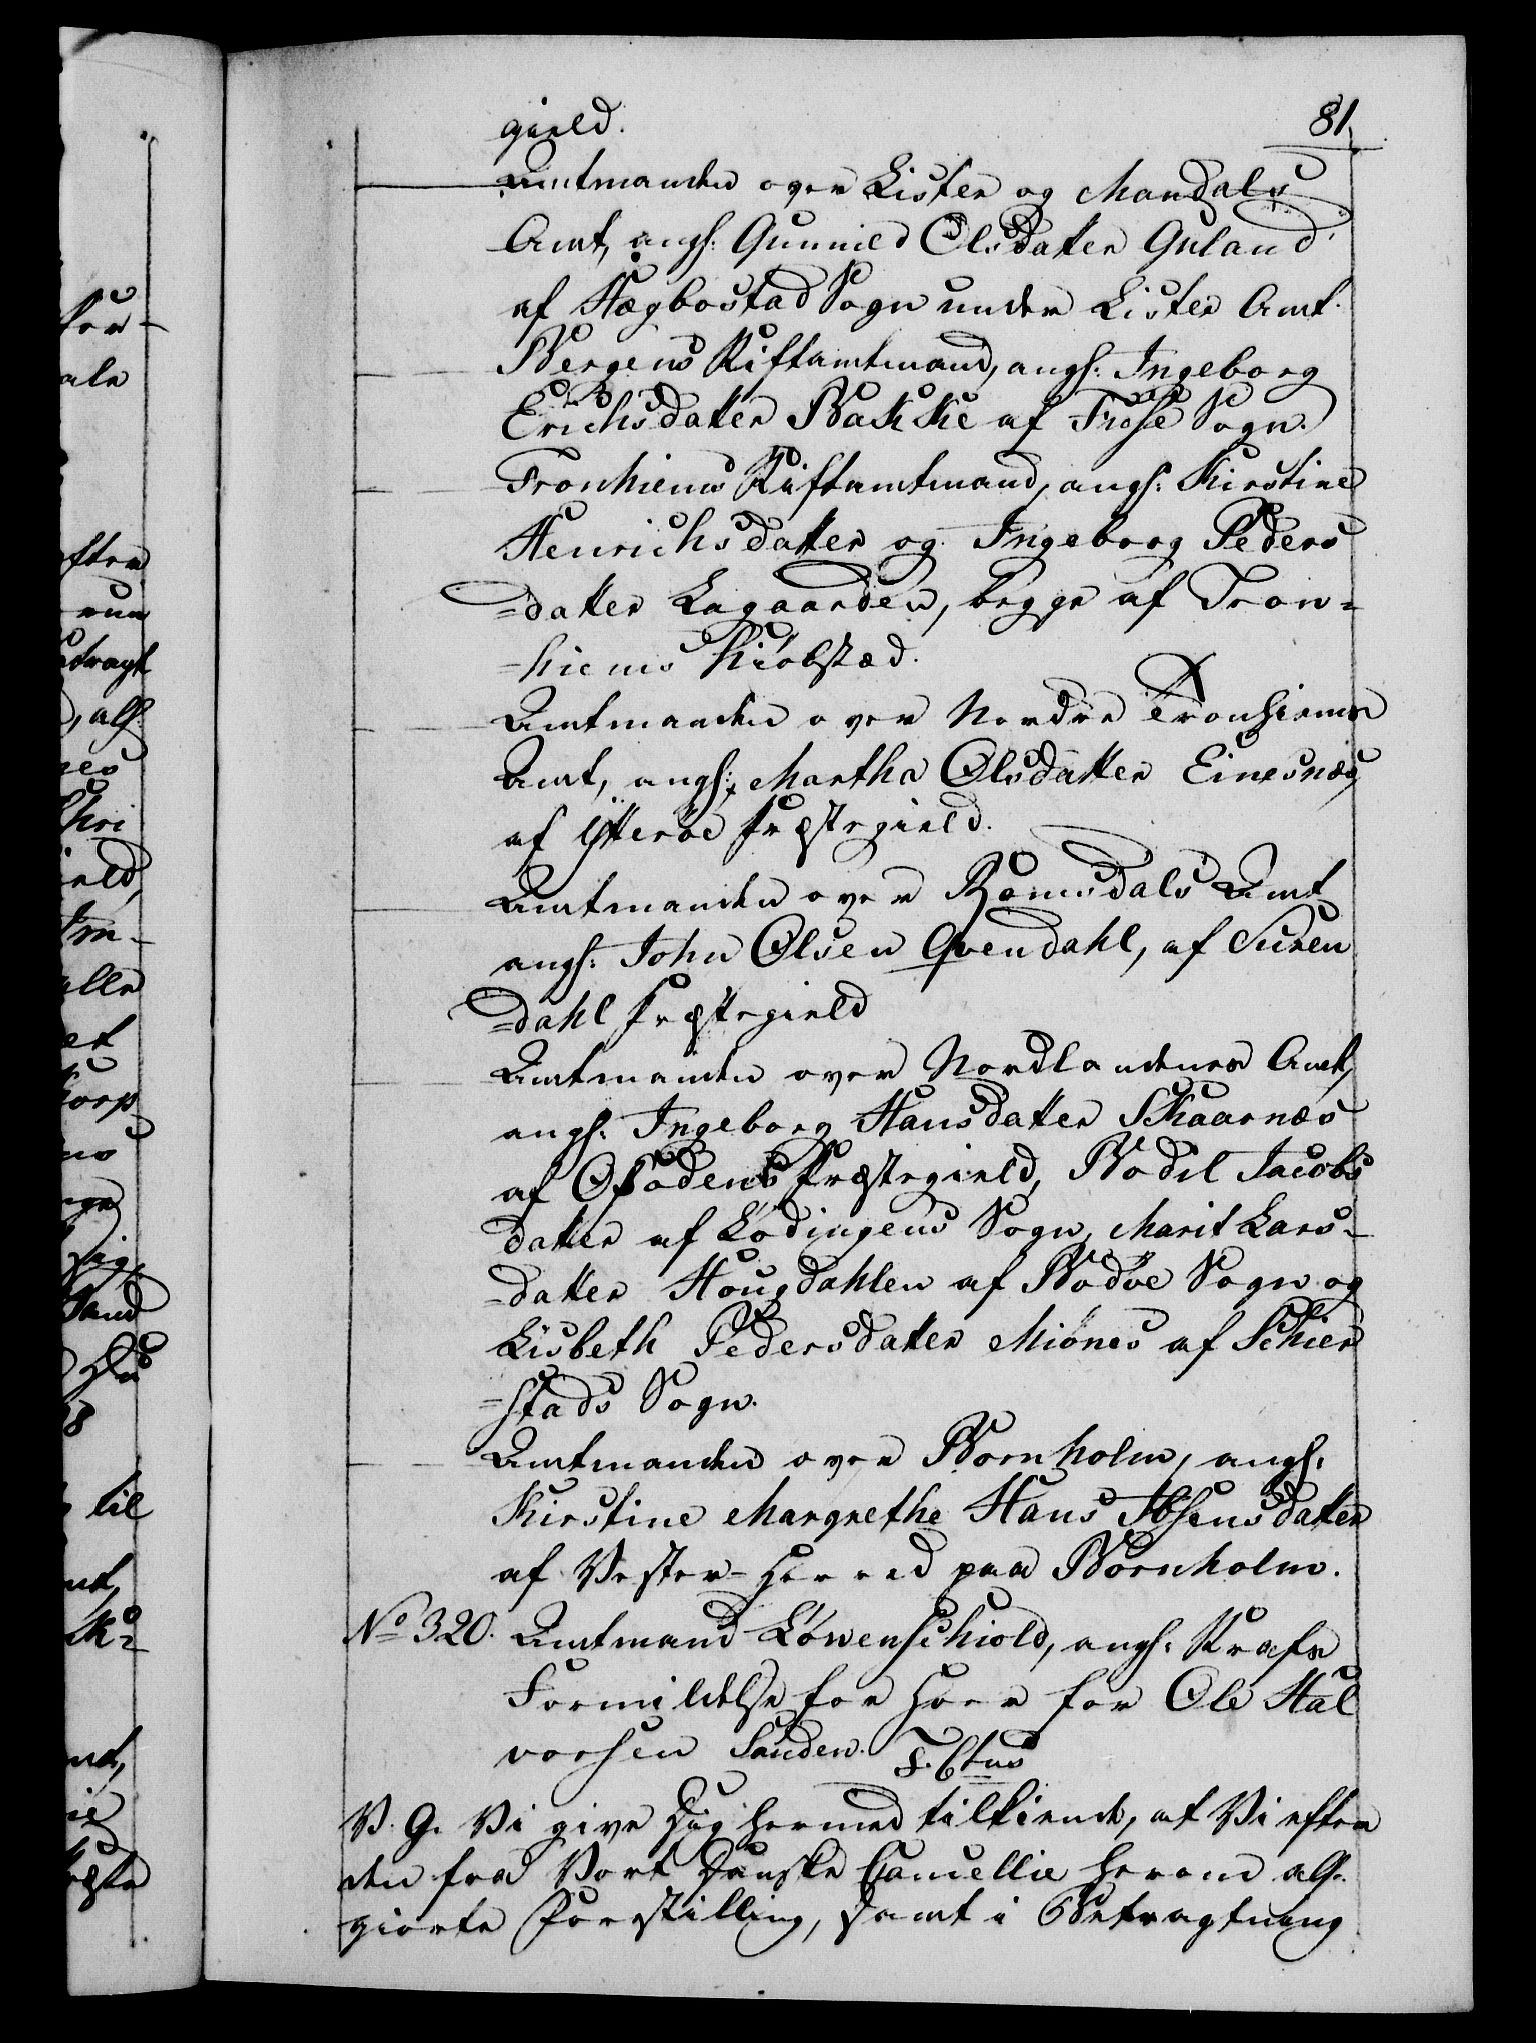 81.
gield.
Amtmanden over Lister og Mandals
Amt, angl: Gunnild Olsdatter Gyland
af Hægbostad Sogn under Lister Amt.
Bergens Stiftamtmand, angl: Ingeborg
Erichsdatter Bakke af Sogn.
Tronhiems Stiftamtmand, angl: Kirstine
Henrichsdatter og Ingeborg Peders
=datter Lagaarden, begge af Tron=
=hiems Kiöbstæd.
Amtmanden over Nordre Tronhiems
Amt, angl: Martha Olsdatter Einesnæs
af Ytteröe Præstegield.
Amtmanden over Romsdals Amt
angl: John Olsen Qvendahl, af Suren
=dahl Præstegield
Amtmanden over Nordlandenes Amt,
angl: Ingeborg Hansdatter Skaarnæs
af Ofodens Præstegield, Bodil Jacobs
datter af Lödingens Sogn, Marit Lars=
=datter Hougdahlen af Bodöe Sogn og
Lisbeth Pedersdatter Miönes af Schier
=stads Sogn.
Amtmanden over Bornholm, angl:
Kirstine Margrethe Hans Ibsensdatter
af Vester-Herred paa Bornholm.
No 320. Amtmand Löwenschiold, angl: Straffe
Formildelse for Hoer for Ole Hal
vorsen Sanden. F. Ctus
V. G. Vi give Dig hermed tilkiende, at Vi efter
den fra Vort Danske Cancellie herom all:
giorte Forestilling, samt i Betragtning